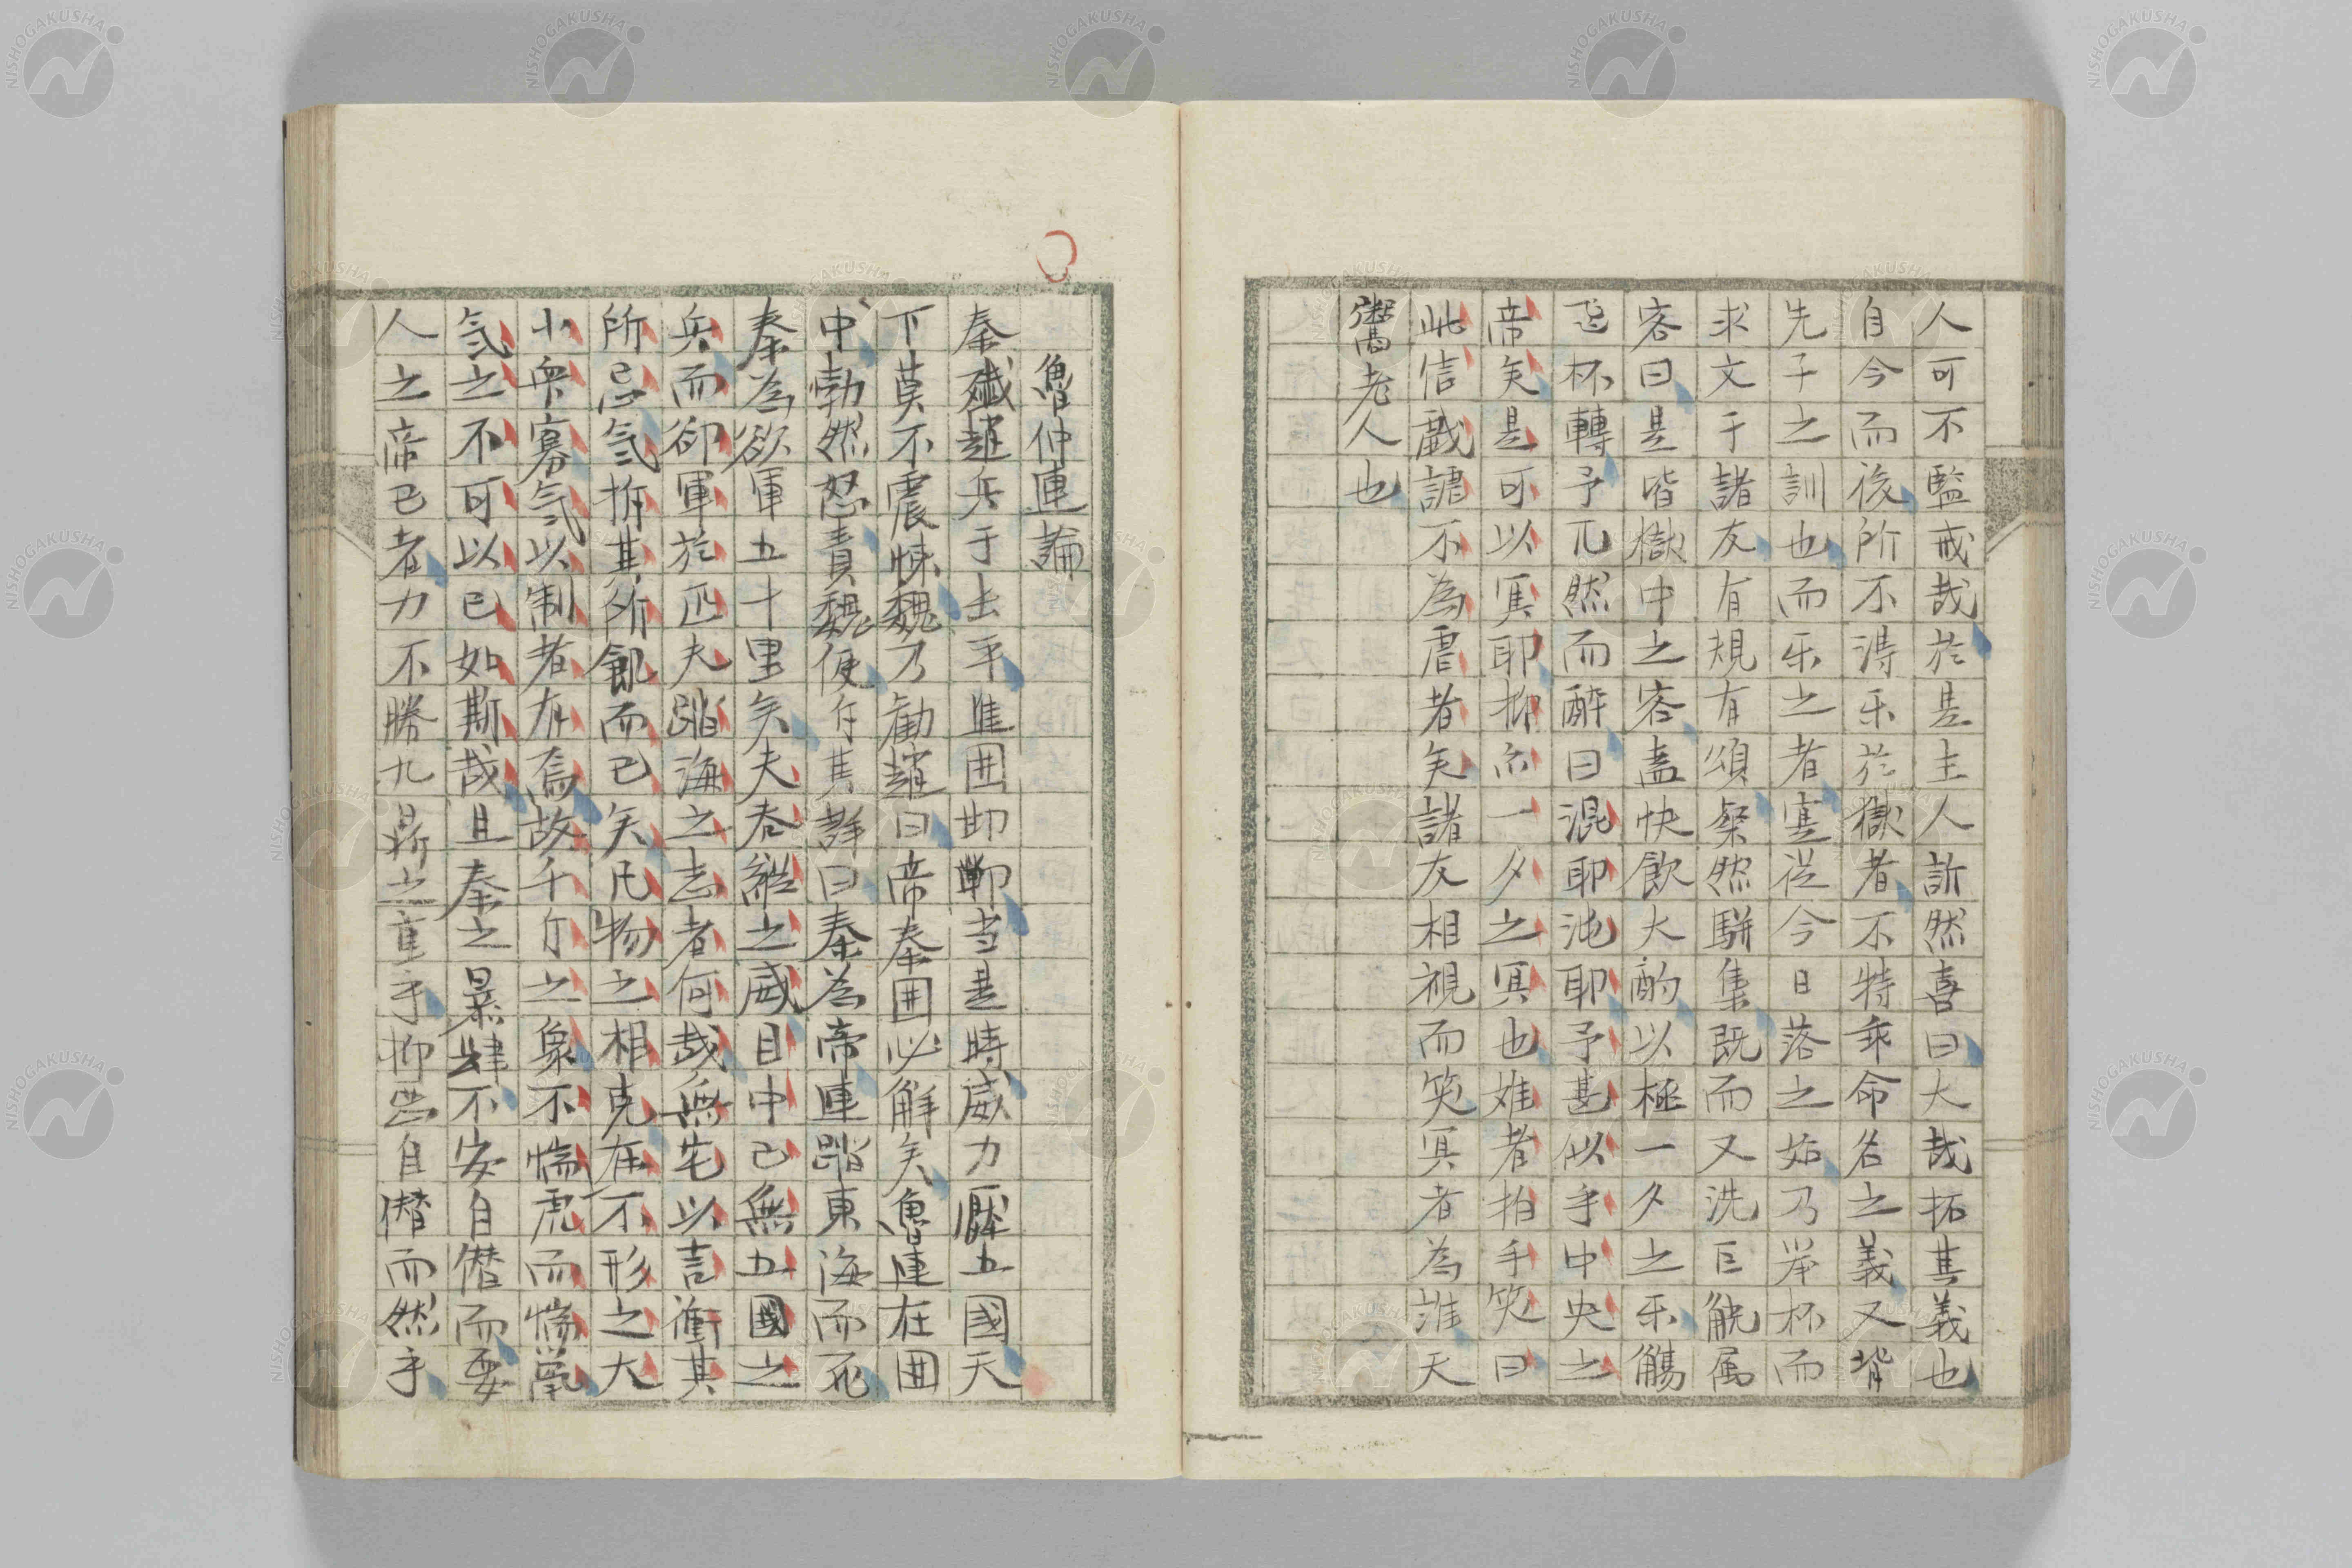 人可不監戒哉於是主人訢然喜曰大哉拓其義也
自今而後所不得乐於獄者不特乖命名之義又背
先子之訓也而乐之者寔従今日落之始乃举杯而
求文于諸友有規有頌粲然駢集既而又洗巨觥属
客曰是皆獄中之客盍快飲大酌以極一夕之乐觴
飛杯轉予兀然而酔曰混耶沌耶予甚似手中央之
帝矣是可以冥耶抑亦一夕之冥也难者拍手笑曰
此信戯謔不為虐者矣諸友相視而笑冥者為誰天
老人也
魯仲連論
秦殲趙兵于长平進囲邯鄲当是時威力壓五國天
下莫不震悚魏乃勧趙曰帝秦囲必解矣魯連在囲
中勃然怒責魏使斥其群曰秦為帝連蹈東海而死
秦為欲軍五十里矣夫老縦之威目中已無五國之
兵而卻軍於匹夫蹈海之志者何哉無宅以言衝其
所忌气拆其所飢而已矣凡物之相克在不形之大
小衆寡气以制者有焉故千斤之象不惴虎而惴鼠
气之不可以已如斯哉且秦之暴肆不安自僣而要
人之帝已者力不勝九鼎之重乎抑其自僣而然乎